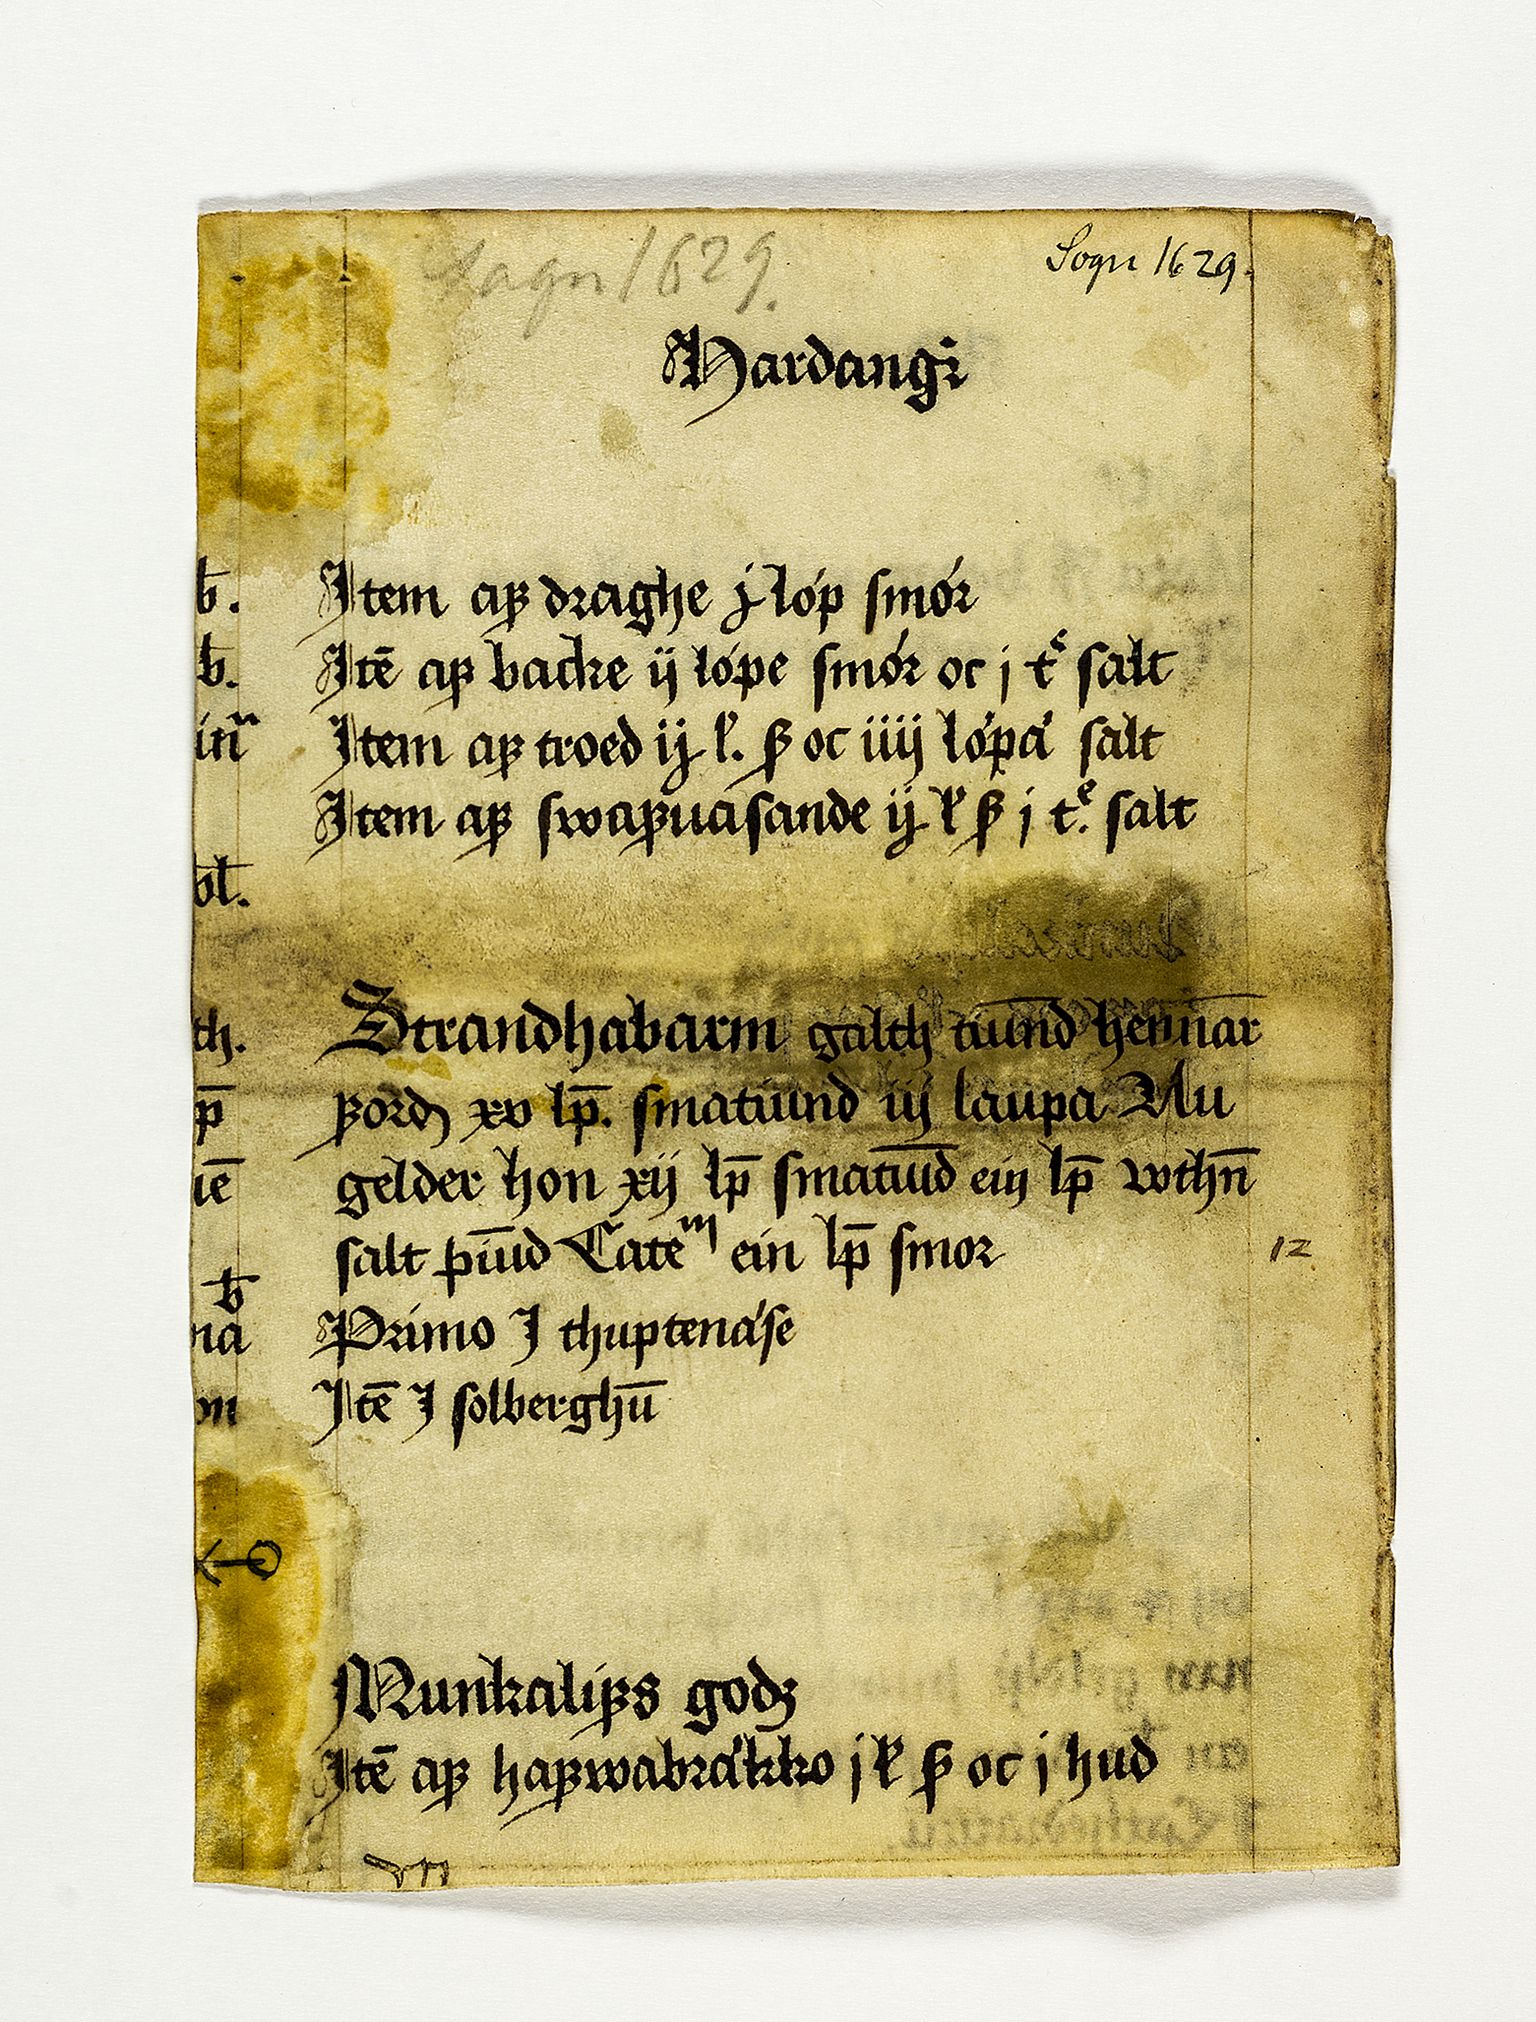 Sogn 1629.
Sogn 1629.
Hardangr
b. Item aff draghe j lóp smór
b. Itē aff backe ij lópe smór oc j tͤ salt
in Item aff troed ij l. ß oc iiij lópa salt
Item aff swaffuasande ij l ß j tͤ. salt
bł.
th. Strandhabarm galth tiund hennar
p̄ fford xv lp̄. smatiund iij laupa Nu
iē gelder hon xij lp̄ smatiūd ein lp̄ wthn̄
salt þiūd Cateᵐ ein lp̄ smor
12
b
na Primo I thuptenáse
om Itē I solberghū
Munkaliffs godz
Itē aff haffwabrákko j l ß oc j hud